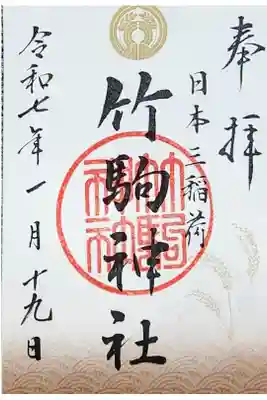 奉拝
日本三稲荷
竹駒神社
竹駒神社
令和七年一月十九日